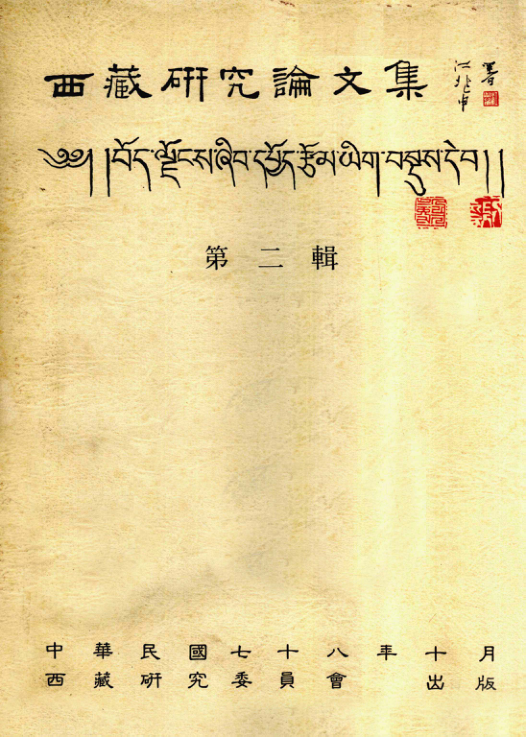 西藏研究論文集
江兆申 署
༄༅། །བོད་ལྗོངས་ཞིབ་དཔྱོད་རྩོམ་ཡིག་བསྡུས་དེབ། །
第二輯
中華民國七十八年十月
西藏研究委員會出版